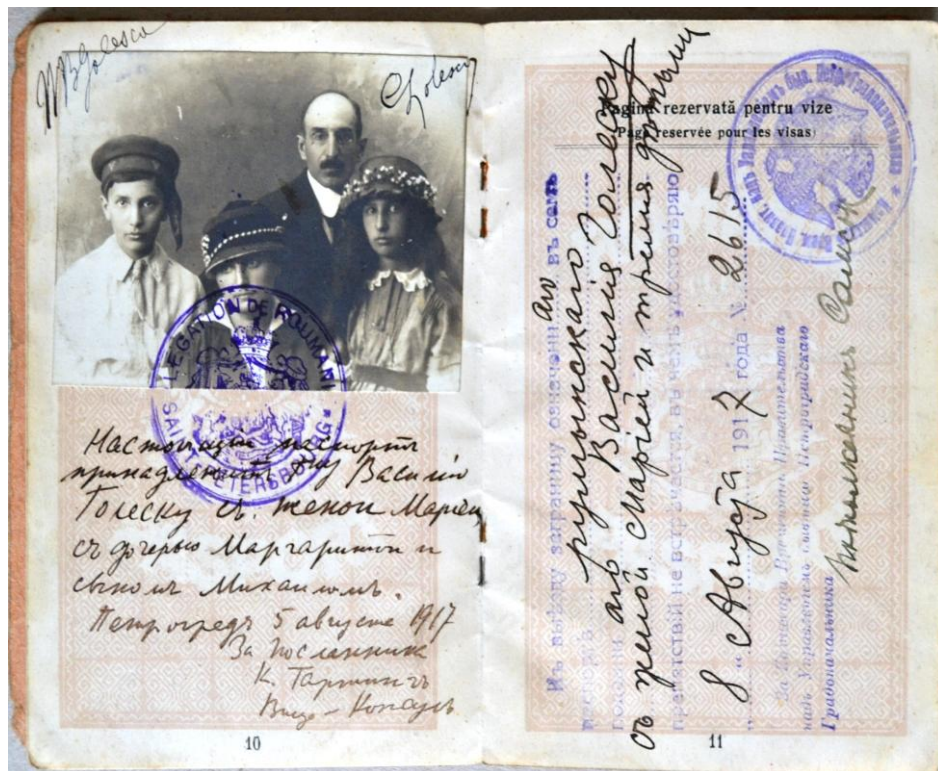 M B Golesco
Golescu
LEGATION DE ROUMANIE
SAINT PETERSBOURG
Настоящий паспортъ
принадлежитъ Василію
Голеску съ женой Маріей
съ дочерью Маргаритой и
сыномъ Михаиломъ.
Петроградъ 5 августа 1917
За Посланника
К.
Вице-Консулъ
10
Pagină rezervată pentru vize
(Page reservée pour les visas)
Къ выѣзду заграницу означен аго въ семъ
паспортѣ румынскаго
Василія Голеску
съ женой Маріей и тремя дѣтьми
препятствій не встрѣчается, въ чемъ удостовѣряю
„ 8 “ Августа 1917 года № 2615
За Комиссара Временнаго Правительства
надъ Управленіемъ бывшаго Петроградскаго
Градоначальника
11